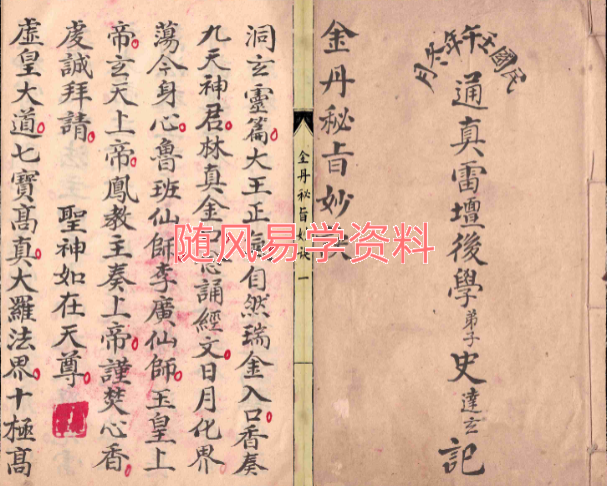 民國壬午年冬月
通真雷壇後學弟子史達玄記
金丹秘旨妙訣
金丹秘旨妙訣 一
洞玄靈篇大王正氣自然瑞金入口香奏
九天神君林真金口念誦經文日月化界
蕩今身心魯班仙師李廣仙師玉皇上
帝玄天上帝鳳教主奏上帝謹焚心香
虔誠拜請 聖神如在天尊
虛皇大道七寶高真大羅法界十極高
随风易学资料